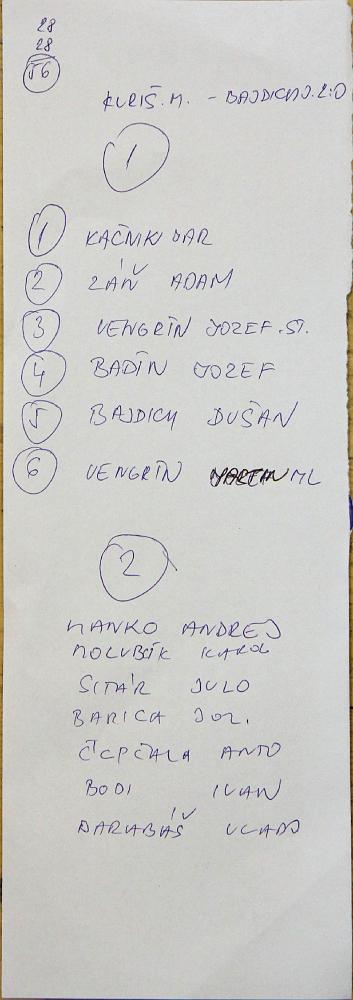 28
28
56
KURIŠ. M. - BAJDICH J. 2:0
1
1 KAČNIK JAR
2 ZÁŇ ADAM
3 VENGRÍN JOZEF. ST.
4 BADÍN JOZEF
5 BAJDICH DUŠAN
6 VENGRÍN MARTIN ML
2
HANKO ANDREJ
HOLUBČÍK KAROL
SITÁR JULO
BARICA JOZ.
BODI IVAN
DARABÁŠ VLADO